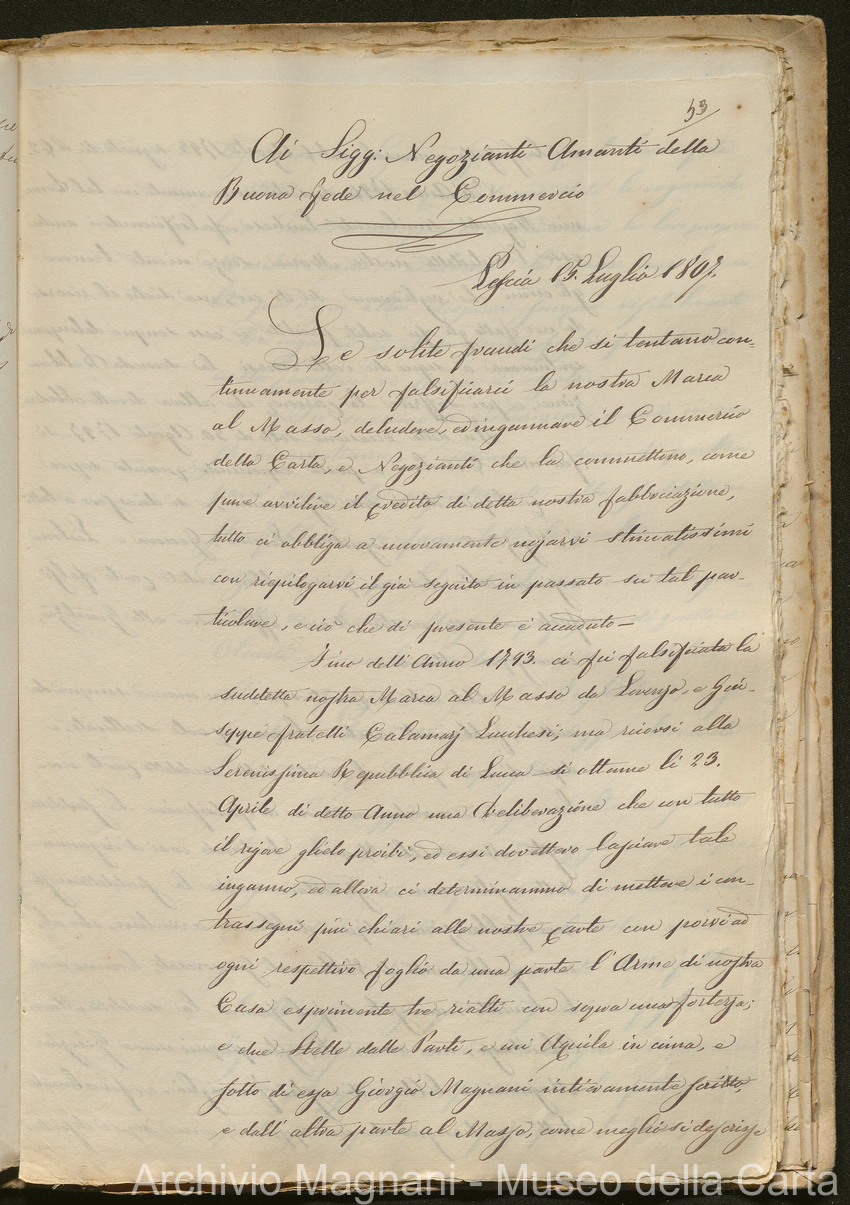 53
Ai Sigg: Negozianti Amanti della
Buona fede nel Commercio
Pescia 15. Luglio 1807.
Le solite fraudi che si tentano con=
tinuamente per falsificarci la nostra Marca
al Masso, deludere, ed ingannare il Commercio
della Carta, e Negozianti che la commettono, come
pure avvilire il credito di detta nostra fabbricazione,
tutto ci obbliga a nuovamente nojarvi stimatissimi
con riepilogarvi il già seguito in passato su tal par-
ticolare, e ciò che di presente è accaduto—
Fino dell'Anno 1793. ci fu falsificata la
suddetta nostra Marca al Masso da Lorenzo, e Giu-
seppe fratelli Calamarj Lucchesi; ma ricorsi alla
Serenissima Repubblica di Lucca si ottenne li 23.
Aprile di detto Anno una Deliberazione che con tutto
il rigore glielo proibì, ed essi dovettero lasciare tale
inganno, ed allora ci determinammo di mettere i con-
trassegni più chiari alle nostre Carte con porvi ad
ogni respettivo foglio da una parte l'Arme di nostra
Casa esprimente tre rialti con sopra una fortezza;
e due Stelle dalle Parti, e un Aquila in cima, e
sotto di essa Giorgio Magnani intieramente scritto,
e dall'altra parte al Masso, come meglio si descrisse
Archivio Magnani - Museo della Carta